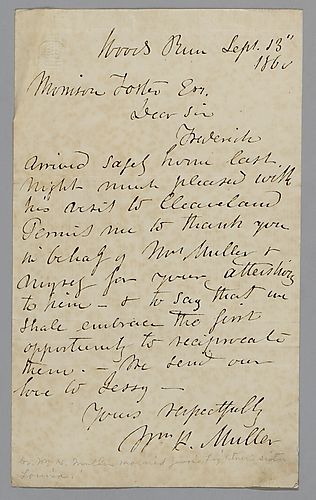 Woods Run Sept. 13"
1860
Morrison Foster Esq.
Dear Sir
Frederick
arrived safely home last
night much pleased with
his visit to Cleaveland
Permit me to thank you
in behalf of Mrs Muller &
myself for your attention
to him – & to say that we
shall embrace the first
opportunity to reciprocate
them. – We send our
love to Jessy –
Yours respectfully
Wm H. Muller
Muller married sister
Louisa.